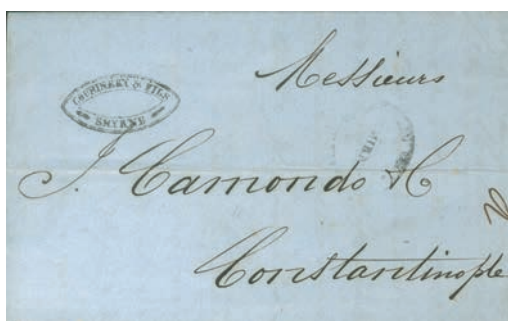 & FILS
SMYRNE
Messieurs
J. Camondo & C
Constantinople